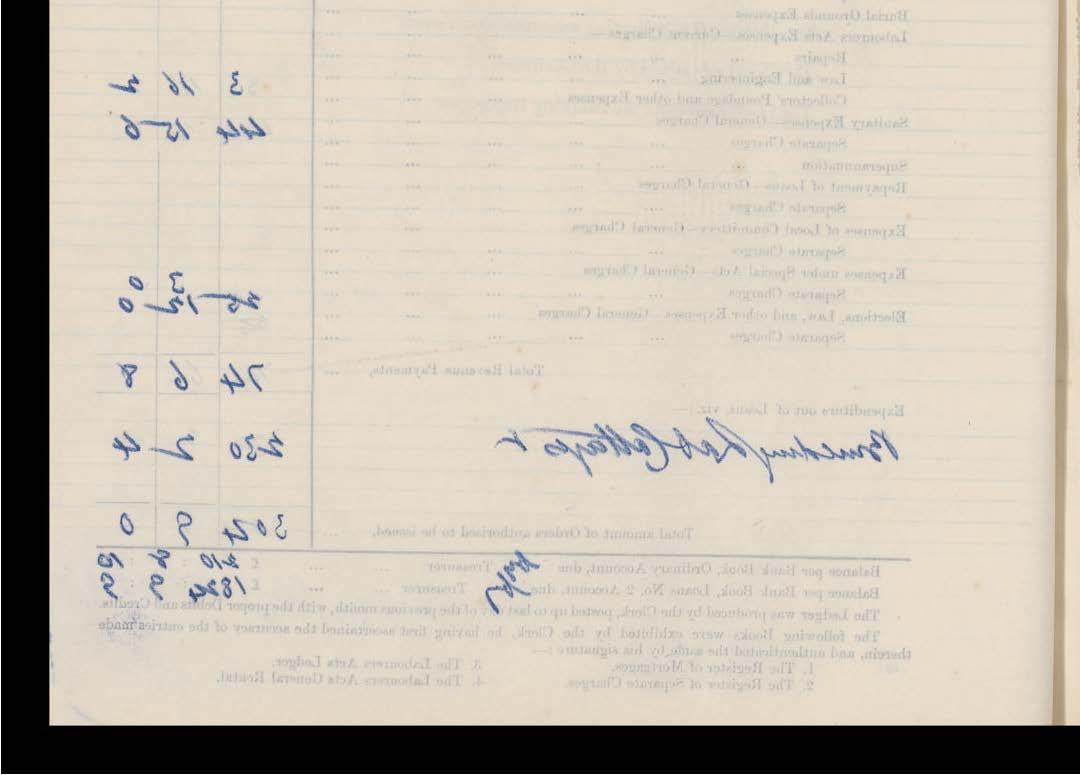 Burial Grounds Expenses
Labourers Acts Expenses—Current Charges—
Repairs
Law and Engineering
Collectors' Poundage and other Expenses
Sanitary Expenses—General Charges
Separate Charges
Superannuation
Repayment of Loans—General Charges
Separate Charges
Expenses of Local Committees—General Charges
Separate Charges
Expenses under Special Acts—General Charges
Separate Charges
Elections, Law, and other Expenses—General Charges
Separate Charges
Total Revenue Payments, 74 6 8
Expenditure out of Loans, viz.:—
Building Lab Cottages 230 4
Total amount of Orders authorised to be issued, 304 8 0
Balance per Bank Book, Ordinary Account, due Treasurer £
Balance per Bank Book, Loans No. 2 Account, due Treasurer £
The Ledger was produced by the Clerk, posted up to last day of the previous month, with the proper Debits and Credits.
The following Books were exhibited by the Clerk, he having first ascertained the accuracy of the entries made
therein, and authenticated the same by his signature:—
1. The Register of Mortgages.
2. The Register of Separate Charges.
3. The Labourers Acts Ledger.
4. The Labourers Acts General Rental.